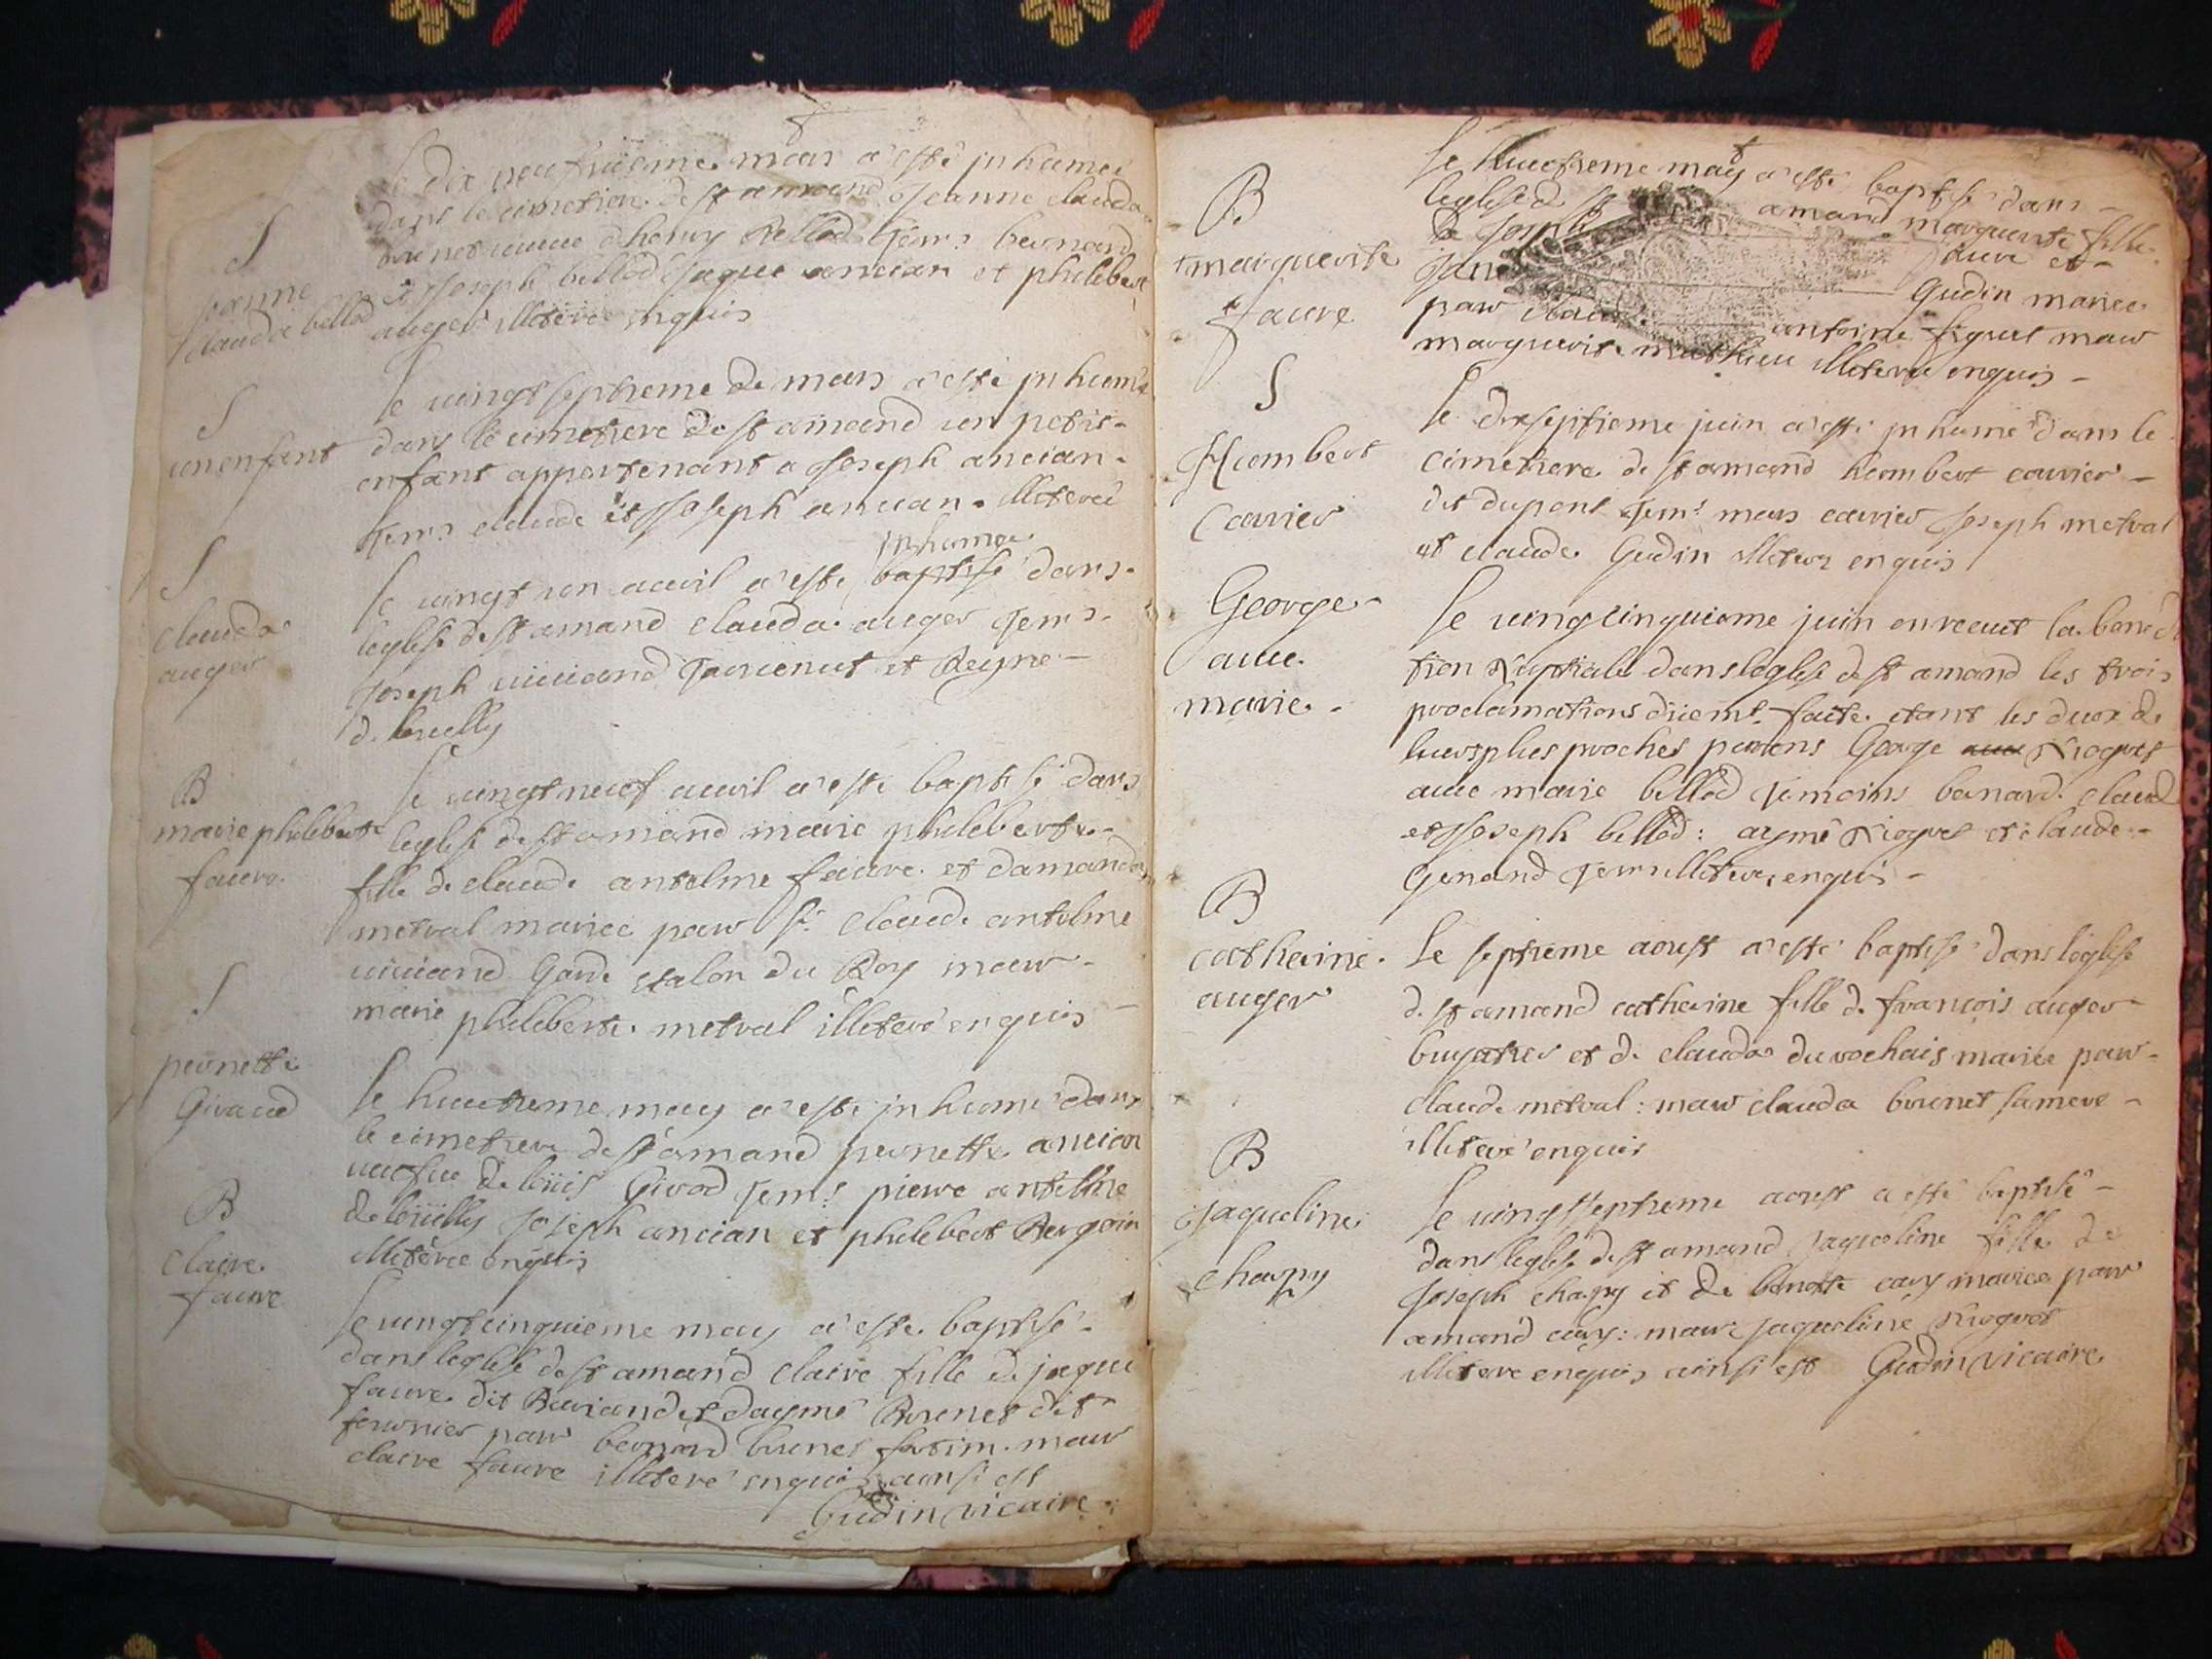 Le dix neufvieme mars a esté jnhumeé
dans le cimetiere de st amand Jeanne clauda
brunet veuve dhenry Bellod Tem.s bernard
et Joseph bellod Jaque ancian et philibert
auger illiteré enquis
S
Jeanne
clauda bellod
Le vingt septieme de mars a esté jnhumé
dans le cimetiere de st amand un petit
enfant appartenant a Joseph ancian
Tem.s claude et Joseph ancian illiteré
S
un enfant
jnhumee
Le vingt un avril a esté baptisé dans
leglise de st amand clauda auger Tem.s
Joseph viviand et Reyne
de lucilly
S
clauda
auger
Le vingt neuf avril a esté baptisé dans
leglise de st amand marie philiberte
fille de claude antelme favre et damanda
metral mariee parr Sr claude antelme
viviand Garde etalon du Roy marr
marie philiberte metral illiteré enquis
B
marie philiberte
favre
Le huitieme may a esté jnhumé dans
le cimetiere de st amand pernette ancian
veufve de loüis Girod Tem.s pierre antelme
de lüilly Joseph ancian et philibert Bergoin
illiteré enquis
S
pernette
Giraud
Le vingt cinquieme may a esté baptisé
dans leglise de st amand claire fille de jaque
favre dit Buriand et daymé Brunet dit
fournier parr bernard brunet marr
claire favre illiteré enquis ainsi est
Gudin vicaire
B
claire
favre
Le huictieme may a esté baptisé dans
leglise de st amand marguerite fille
de Joseph favre et
Gudin mariee
parr claude antoine figuet marr
marguerite mathieu illiteré enquis
B
marguerite
favre
Le dixseptieme juin a esté jnhumé dans le
cimetiere de st amand humbert carrier
dit dupont Tem.s mars carrier Joseph metral
et claude Gudin illiterez enquis
S
Humbert
Carrier
Le vingcinquieme juin on receut la benedi
tion Nuptiale dans leglise de st amand les trois
proclamations düemt faite etant les deux de
leurs plus proches parens George avec Nioguet
avec marie bellod temoins benard claud
et Joseph bellod: aymé Nioguet et claude
Genand Tem illiterez enquis
George
avec
marie
Le septieme aoust a esté baptisé dans leglise
de st amand catherine fille de françois auger
bugatier et de clauda durochais mariee parr
claude metral: marr clauda brunet samere
illiteré enquis
B
catherine
auger
Le vingtseptieme aoust a esté baptisé
dans leglise de st amand Jaqueline fille de
Joseph chapy et de benoite cary mariee parr
amand cary: marr jaqueline Nioguet
illiteré enquis ainsi est Gudin vicaire
B
Jaqueline
chapy